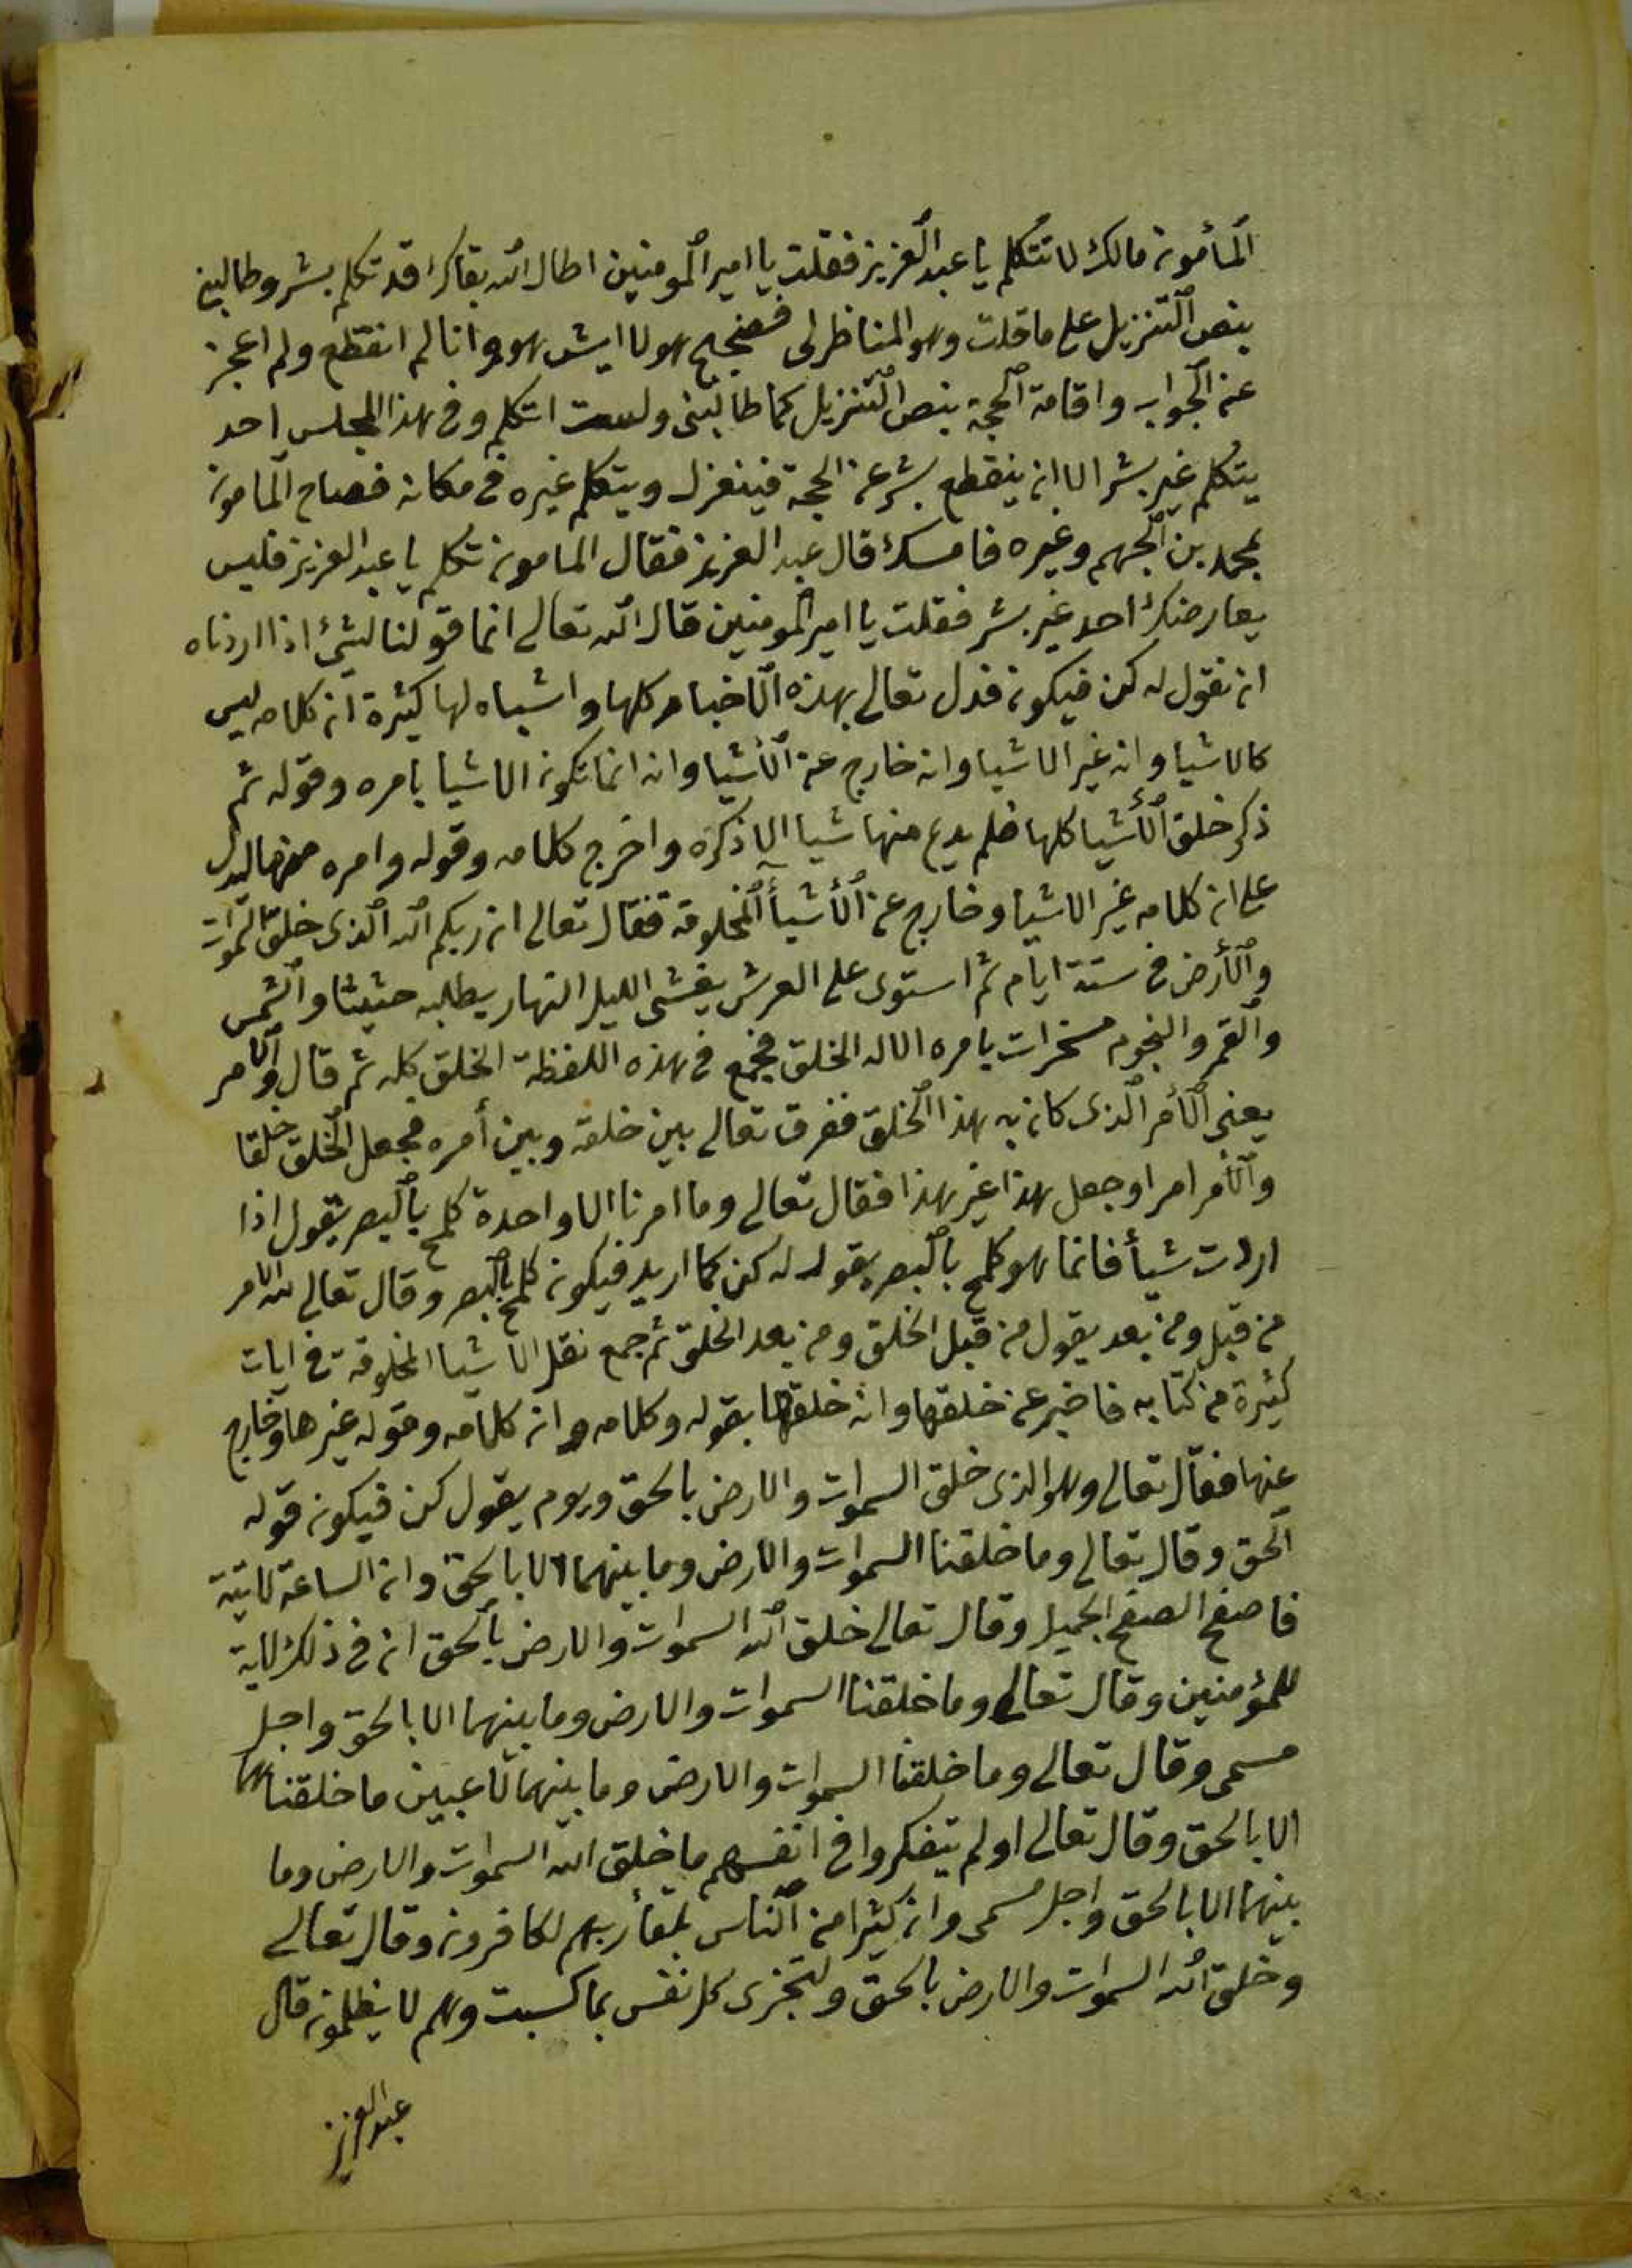 المأمون مالك لا تتكلم يا عبد العزيز فقلت يا امير المومنين اطال الله بقاك قد تكلم بشر وطالبني
بنص التنزيل على ما قلت وهو المناظر لى فضجيج هولا ايش هو وانا لم انقطع ولم اعجز
عن الجواب واقامة الحجة بنص التنزيل كما طالبنى ولست اتكلم وفى هذا المجلس احد
يتكلم غير بشر الا ان ينقطع بشر عن الحجة فينعزل ويتكلم غيره فى مكانه فصاح المامون
بمحمد بن الجهم وغيره فامسك قال عبد العزيز فقال المامون تكلم يا عبد العزيز فليس
يعارضك احد غير بشر فقلت يا امير المومنين قال الله تعالى انما قولنا لشئ اذا اردناه
ان نقول له كن فيكون فدل تعالى بهذه الاخبار كلها واشباه لها كثيرة ان كلامه ليس
كالاشيا وانه غير الاشيا وانه خارج عن الأشيا وانه انما تكون الاشيا بامره وقوله ثم
ذكر خلق الأشيا كلها فلم يدع منها شيا الا ذكره واخرج كلامه وقوله وامره منها ليدل
على ان كلامه غير الاشيا وخارج عن الأشيأ المخلوقة فقال تعالى ان ربكم الله الذى خلق السموات
والأرض فى ستة ايام ثم استوى على العرش يغشى الليل النهار يطلبه حثيثا والشمس
والقمر والنجوم مسخرات بامره الا له الخلق فجمع فى هذه اللفظة الخلق كله ثم قال والامر
يعنى الأمر الذى كان به هذا الخلق ففرق تعالى بين خلقه وبين أمره فجعل الخلق خلقا
والأمر امرا وجعل هذا غير هذا فقال تعالى وما امرنا الا واحدة كلمح بالبصر يقول اذا
اردت شيأ فانما هو كلمح بالبصر يقول له كن كما اريد فيكون كلمح بالبصر وقال تعالى لله الامر
من قبل ومن بعد يقول من قبل الخلق ومن بعد الخلق ثم جمع نقل الاشيا المخلوقة فى ايات
كثيرة من كتابه فاخبر عن خلقها وانه خلقها بقوله وكلامه وان كلامه وقوله غيرها وخارج
عنها فقال تعالى وهو الذى خلق السموات والارض بالحق ويوم يقول كن فيكون قوله
الحق وقال تعالى وما خلقنا السموات والارض وما بينهما الا بالحق وان الساعة لاتية
فاصفح الصفح الجميل وقال تعالى خلق الله السموات والارض بالحق ان فى ذلك لاية
للمؤمنين وقال تعالى وما خلقنا السموات والارض وما بينهما الا بالحق واجل
مسمى وقال تعالى وما خلقنا السموات والارض وما بينهما لاعبين ما خلقناهما
الا بالحق وقال تعالى اولم يتفكروا فى انفسهم ما خلق الله السموات والارض وما
بينهما الا بالحق واجل مسمى وان كثيرا من الناس بلقأ ربهم لكافرون وقال تعالى
وخلق الله السموات والارض بالحق ولتجزى كل نفس بما كسبت وهم لا يظلمون قال
عبد العزيز